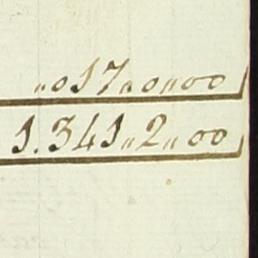 „017„0„00
1.341„2„00